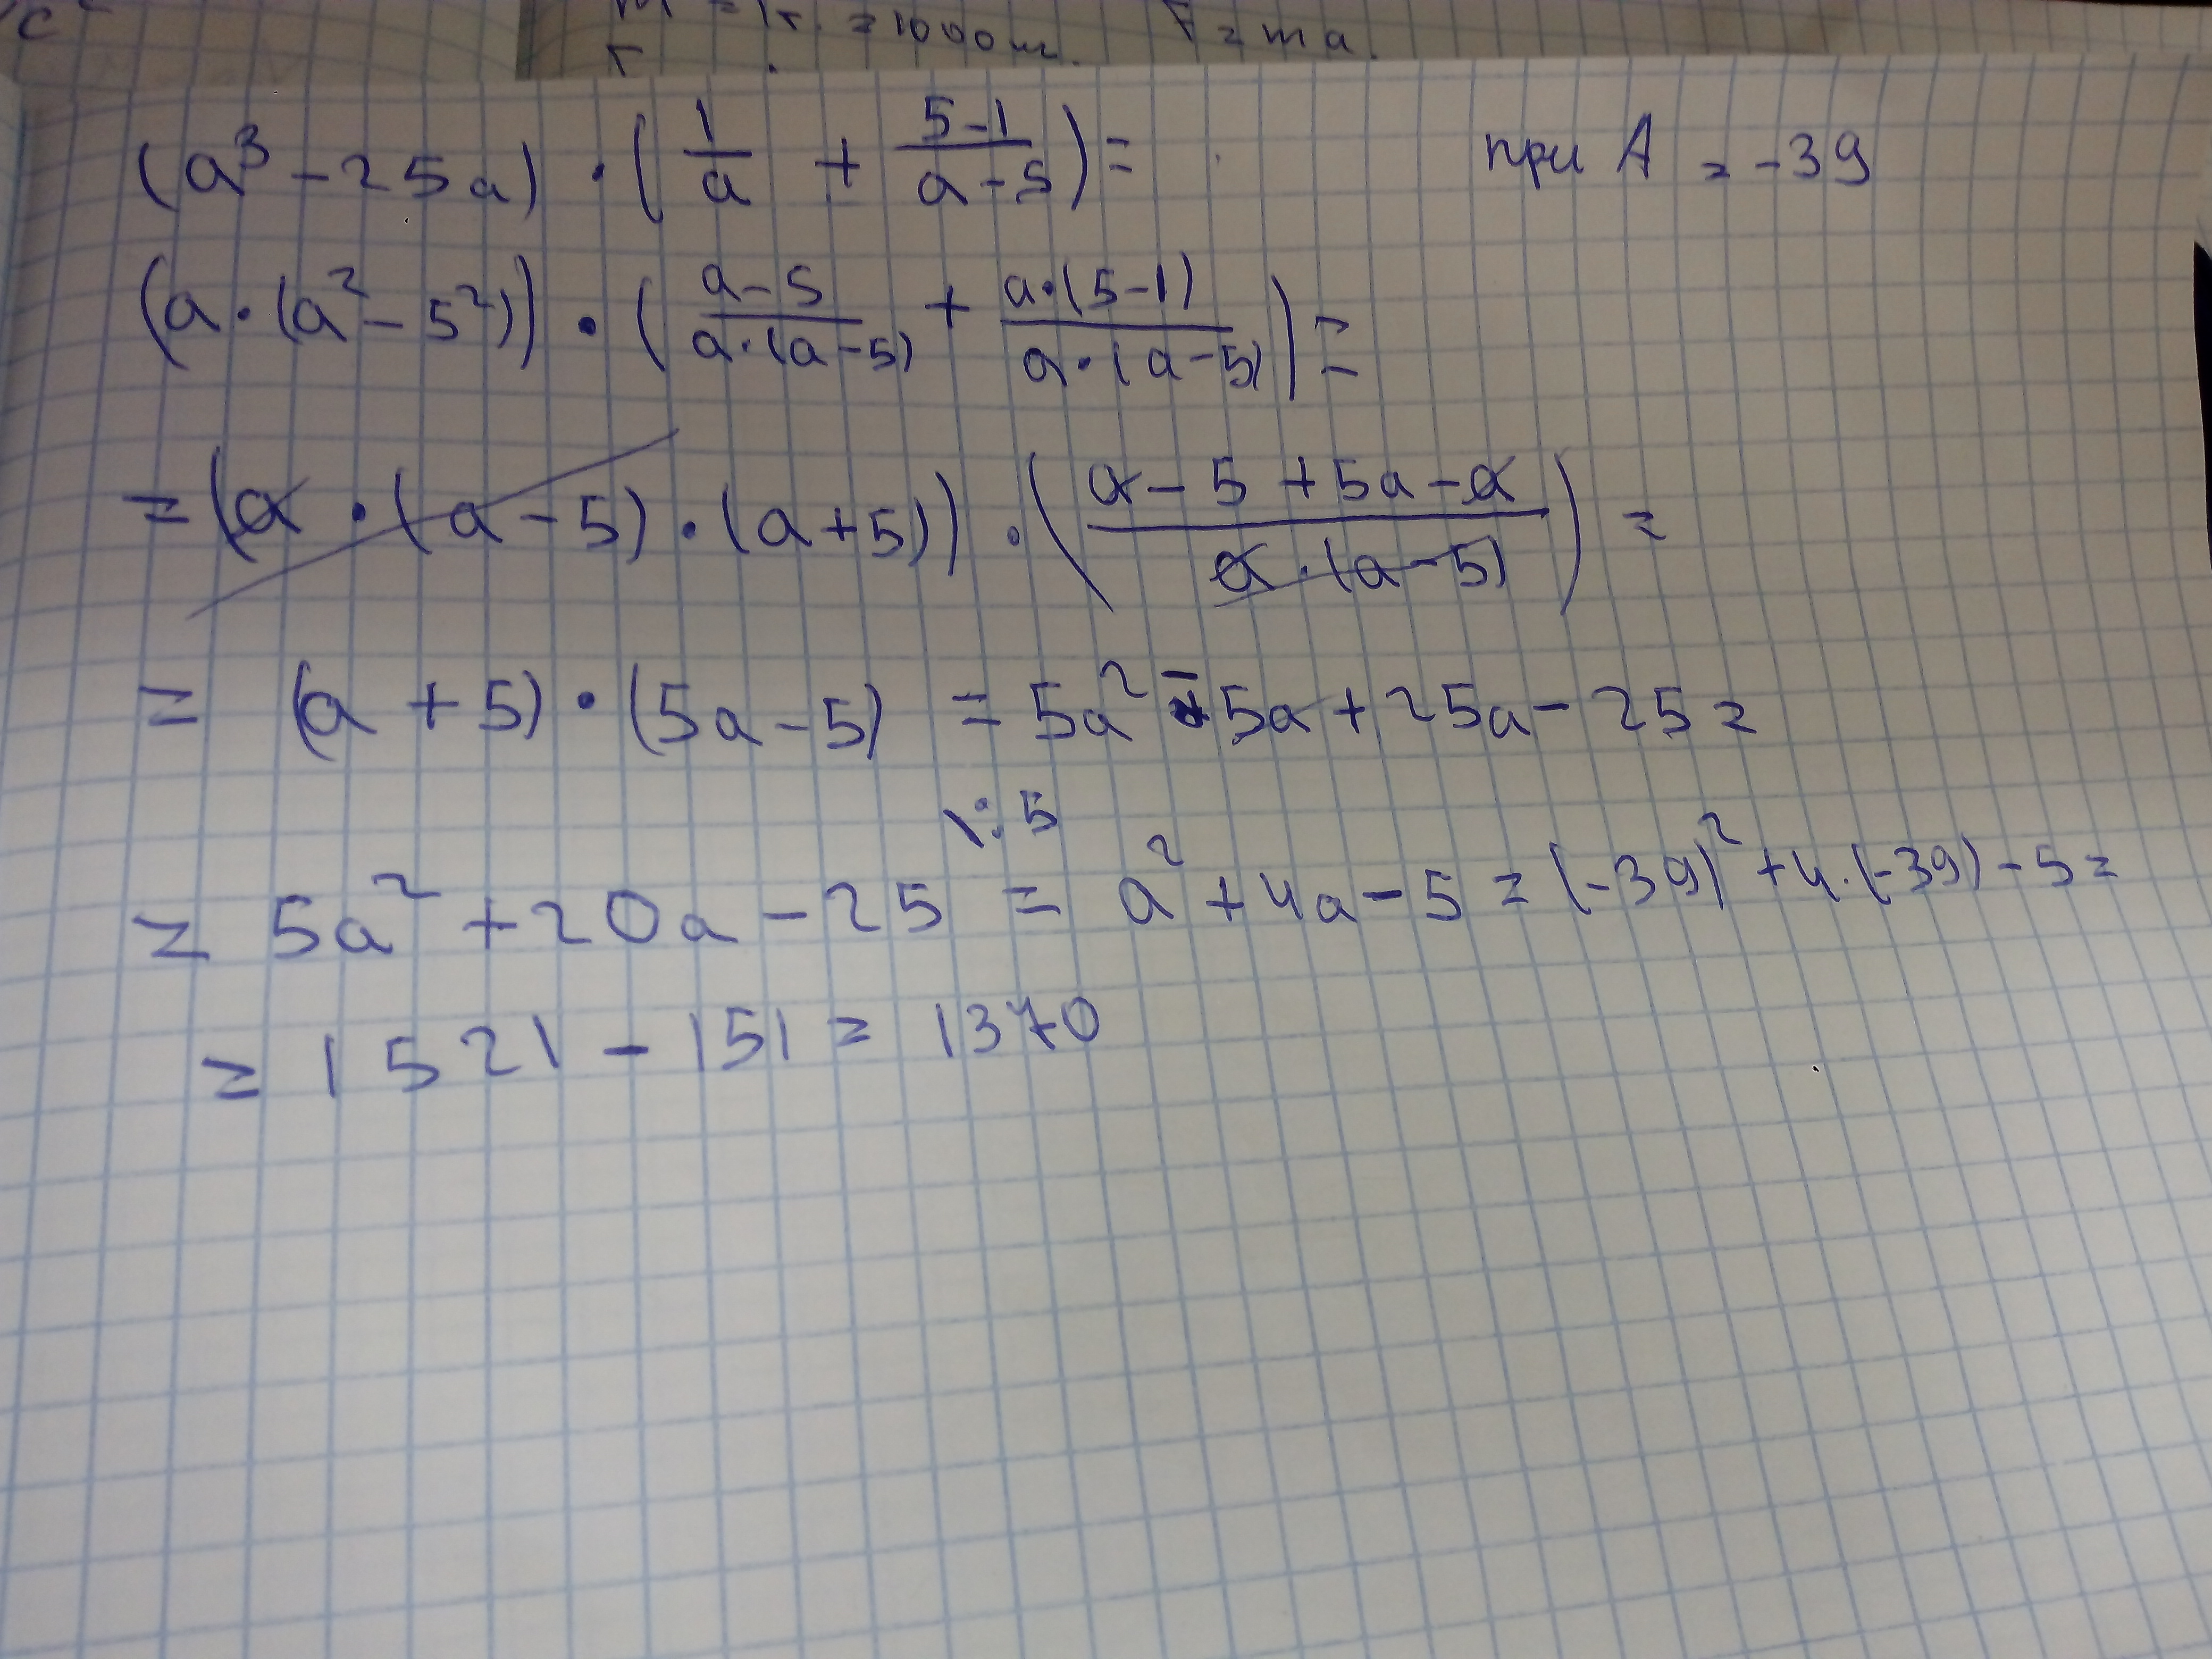 c
m = 1т. = 1000 кг. F = ma.
(a³ - 25a) · (1/a + (5-1)/(a-5)) = при A = -39
(a·(a² - 5²)) · ((a-5)/(a·(a-5)) + (a·(5-1))/(a·(a-5))) =
= (a · (a-5) · (a+5)) · ((a - 5 + 5a - a)/(a·(a-5))) =
= (a + 5) · (5a - 5) = 5a² - 5a + 25a - 25 =
\: 5
= 5a² + 20a - 25 = a² + 4a - 5 = (-39)² + 4·(-39) - 5 =
= 1521 - 151 = 1370